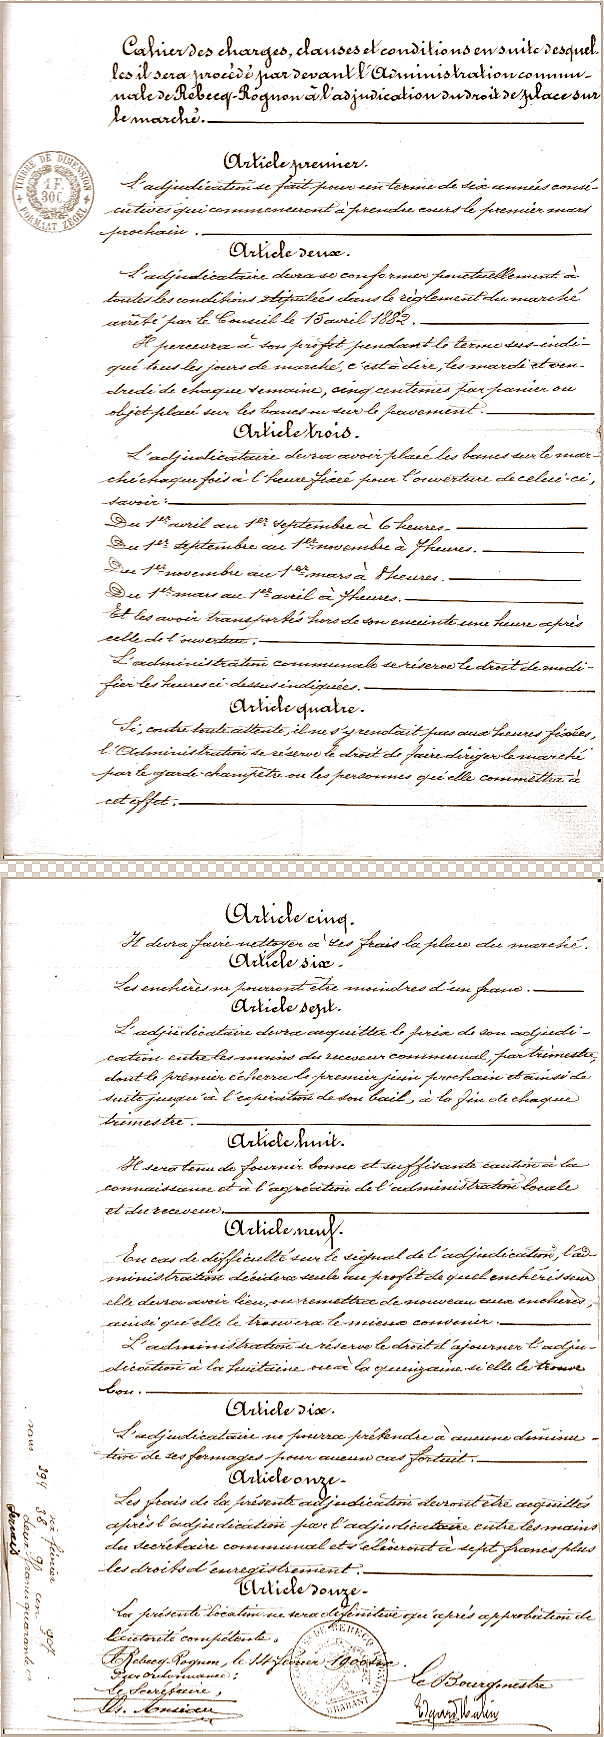 Cahier des charges, clauses et conditions en suite desquel-
les il sera procédé par devant l'Administration commu-
nale de Rebecq-Rognon à l'adjudication du droit de place sur
le marché.
TIMBRE DE DIMENSION
1 F.
30C
FORMAAT ZEGEL
Article premier.
L'adjudication se fait pour un terme de six années consé-
cutives qui commenceront à prendre cours le premier mars
prochain.
Article deux.
L'adjudicataire devra se conformer ponctuellement à
toutes les conditions stipulées dans le règlement du marché
arrêté par le Conseil le 15 avril 1882.
Il percevra à son profit pendant le terme sus-indi-
qué tous les jours de marché, c'est à dire, les mardi et ven-
dredi de chaque semaine, cinq centimes par panier ou
objet placé sur les bancs ou sur le pavement.
Article trois.
L'adjudicataire devra avoir placé les bancs sur le mar-
ché chaque fois à l'heure fixée pour l'ouverture de celui-ci,
savoir:
Du 1er avril au 1er septembre à 6 heures.
Du 1er septembre au 1er novembre à 7 heures.
Du 1er novembre au 1er mars à 8 heures.
Du 1er mars au 1er avril à 7 heures.
Et les avoir transportés hors de son enceinte une heure après
celle de l'ouverture.
L'administration communale se réserve le droit de modi-
fier les heures ci-dessus indiquées.
Article quatre.
Si, contre toute attente, il ne s'y rendait pas aux heures fixées,
l'Administration se réserve le droit de faire diriger le marché
par le garde-champêtre ou les personnes qu'elle commettra à
cet effet.
Article cinq.
Il devra faire nettoyer à ses frais la place du marché.
Article six.
Les enchères ne pourront être moindres d'un franc.
Article sept.
L'adjudicataire devra acquitter le prix de son adjudi-
cation entre les mains du receveur communal, par trimestre,
dont le premier écherra le premier juin prochain et ainsi de
suite jusqu'à l'expiration de son bail, à la fin de chaque
trimestre.
Article huit.
Il sera tenu de fournir bonne et suffisante caution à la
connaissance et à l'agréation de l'administration locale
et du receveur.
Article neuf.
En cas de difficulté sur le signal de l'adjudication, l'ad-
ministration décidera seule au profit de quel enchérisseur
elle devra avoir lieu, ou remettra de nouveau aux enchères,
ainsi qu'elle le trouvera le mieux convenir.
L'administration se réserve le droit d'ajourner l'adju-
dication à la huitaine ou à la quinzaine si elle le trouve
bon.
Article dix.
L'adjudicataire ne pourra prétendre à aucune diminu-
tion de ses fermages pour aucun cas fortuit.
Article onze.
Les frais de la présente adjudication devront être acquittés
après l'adjudication par l'adjudicataire entre les mains
du secrétaire communal et s'élèveront à sept francs plus
les droits d'enregistrement.
Article douze.
La présente location ne sera définitive qu'après approbation de
l'autorité compétente.
Rebecq-Rognon, le 14 février 1900
Par Ordonnance:
Le Secrétaire,
Le Bourgmestre
Edgard
DE REBECQ
BRABANT
six février
394 38
deux francs quarante
Servais